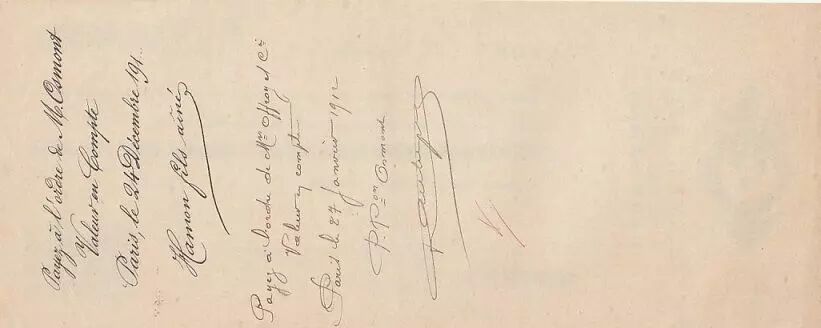 Payez à l'ordre de M. Osmont
Valeur en Compte
Paris, le 24 Décembre 191.
Hamon fils aîné
Payez à l'ordre de Mrs Offroy et Cie
Valeur en compte
Paris le 27 janvier 1912
P. Pon Osmont